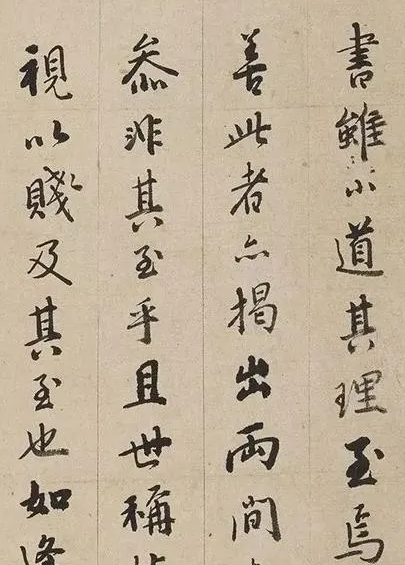 書雖小道其理至焉
善此者亦揭出兩間
叅非其至乎且世稱
視以賤及其至也如